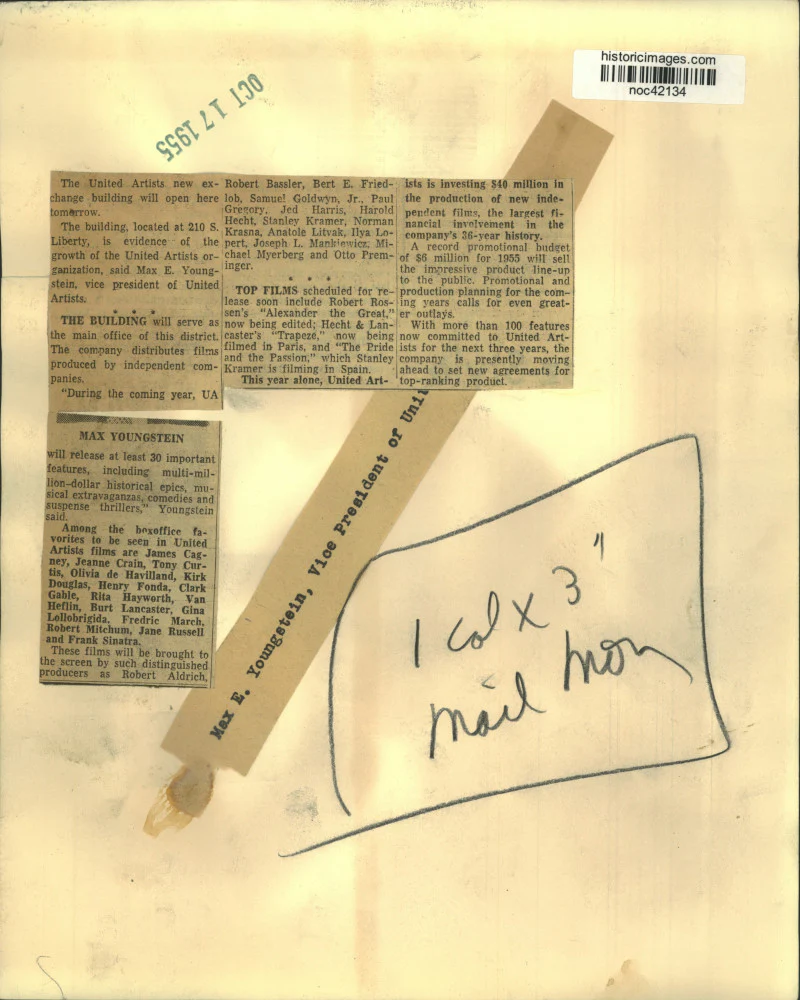 historicimages.com
noc42134
OCT 17 1955
The United Artists new ex-
change building will open here
tomorrow.
The building, located at 210 S.
Liberty, is evidence of the
growth of the United Artists or-
ganization, said Max E. Young-
stein, vice president of United
Artists.
* * *
THE BUILDING will serve as
the main office of this district.
The company distributes films
produced by independent com-
panies.
"During the coming year, UA
MAX YOUNGSTEIN
will release at least 30 important
features, including multi-mil-
lion-dollar historical epics, mu-
sical extravaganzas, comedies and
suspense thrillers," Youngstein
said.
Among the boxoffice fa-
vorites to be seen in United
Artists films are James Cag-
ney, Jeanne Crain, Tony Cur-
tis, Olivia de Havilland, Kirk
Douglas, Henry Fonda, Clark
Gable, Rita Hayworth, Van
Heflin, Burt Lancaster, Gina
Lollobrigida, Fredric March,
Robert Mitchum, Jane Russell
and Frank Sinatra.
These films will be brought to
the screen by such distinguished
producers as Robert Aldrich,
Robert Bassler, Bert E. Fried-
lob, Samuel Goldwyn, Jr., Paul
Gregory, Jed Harris, Harold
Hecht, Stanley Kramer, Norman
Krasna, Anatole Litvak, Ilya Lo-
pert, Joseph L. Mankiewicz, Mi-
chael Myerberg and Otto Prem-
inger.
* * *
TOP FILMS scheduled for re-
lease soon include Robert Ros-
sen's "Alexander the Great,"
now being edited; Hecht & Lan-
caster's "Trapeze," now being
filmed in Paris, and "The Pride
and the Passion," which Stanley
Kramer is filming in Spain.
This year alone, United Art-
ists is investing $40 million in
the production of new inde-
pendent films, the largest fi-
nancial involvement in the
company's 36-year history.
A record promotional budget
of $6 million for 1955 will sell
the impressive product line-up
to the public. Promotional and
production planning for the com-
ing years calls for even great-
er outlays.
With more than 100 features
now committed to United Art-
ists for the next three years, the
company is presently moving
ahead to set new agreements for
top-ranking product.
Max E. Youngstein, Vice President of Unit
1 col x 3"
mail mon